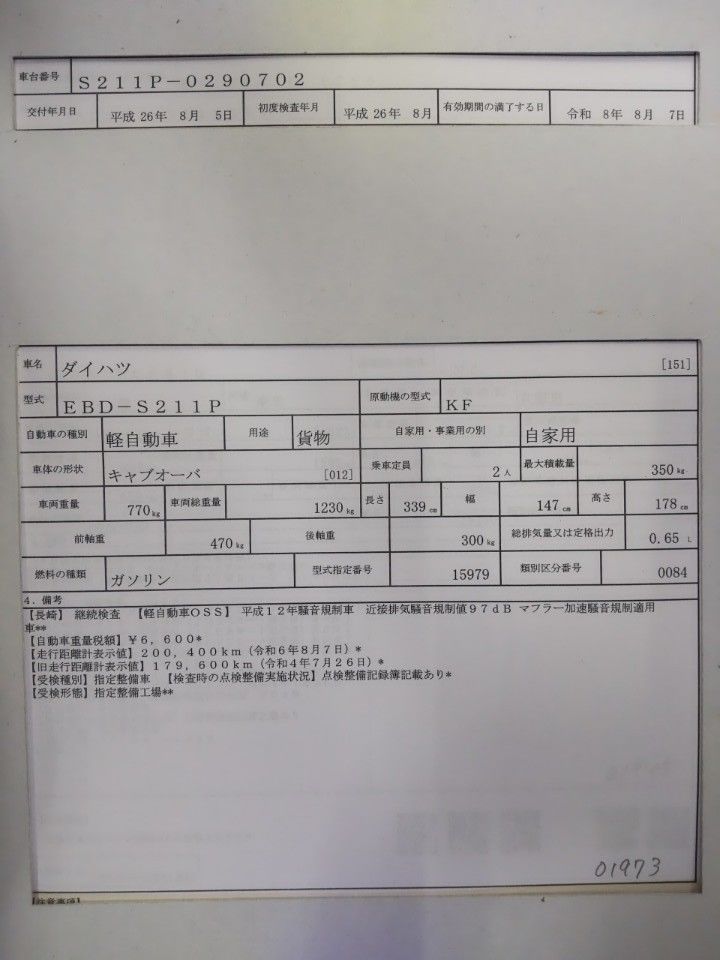 車台番号 S211P-0290702
交付年月日 平成 26年 8月 5日 初度検査年月 平成 26年 8月 有効期間の満了する日 令和 8年 8月 7日
車名 ダイハツ [151]
型式 EBD-S211P 原動機の型式 KF
自動車の種別 軽自動車 用途 貨物 自家用・事業用の別 自家用
車体の形状 キャブオーバ [012] 乗車定員 2人 最大積載量 350kg
車両重量 770kg 車両総重量 1230kg 長さ 339cm 幅 147cm 高さ 178cm
前軸重 470kg 後軸重 300kg 総排気量又は定格出力 0.65 L
燃料の種類 ガソリン 型式指定番号 15979 類別区分番号 0084
4. 備考
【長崎】 継続検査 【軽自動車OSS】 平成12年騒音規制車 近接排気騒音規制値97dB マフラー加速騒音規制適用
車**
【自動車重量税額】¥6,600*
【走行距離計表示値】200,400km(令和6年8月7日)*
【旧走行距離計表示値】179,600km(令和4年7月26日)*
【受検種別】指定整備車 【検査時の点検整備実施状況】点検整備記録簿記載あり*
【受検形態】指定整備工場**
01973